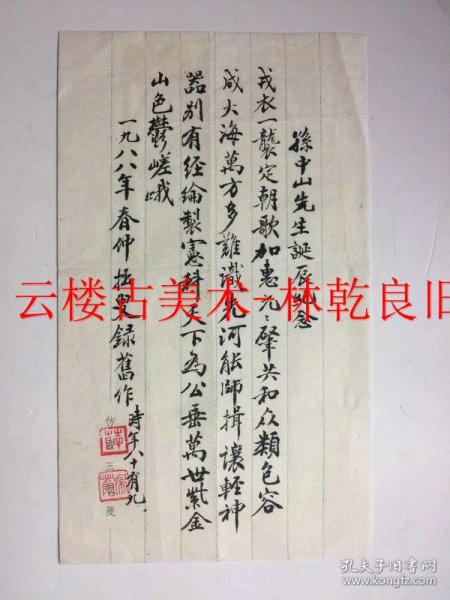 孫中山先生誕辰紀念
戎衣一襲定朝歌加惠元々肇共和众類包容
成大海萬方多難識先河能師揖讓輕神
器別有經綸製憲科天下為公垂萬世紫金
山色鬱嵯峨
一九八八年春仲 叟録舊作時年八十有九
仿 五 箋
云楼古美术-林乾良旧
孔夫子旧书网
www.kongfz.com